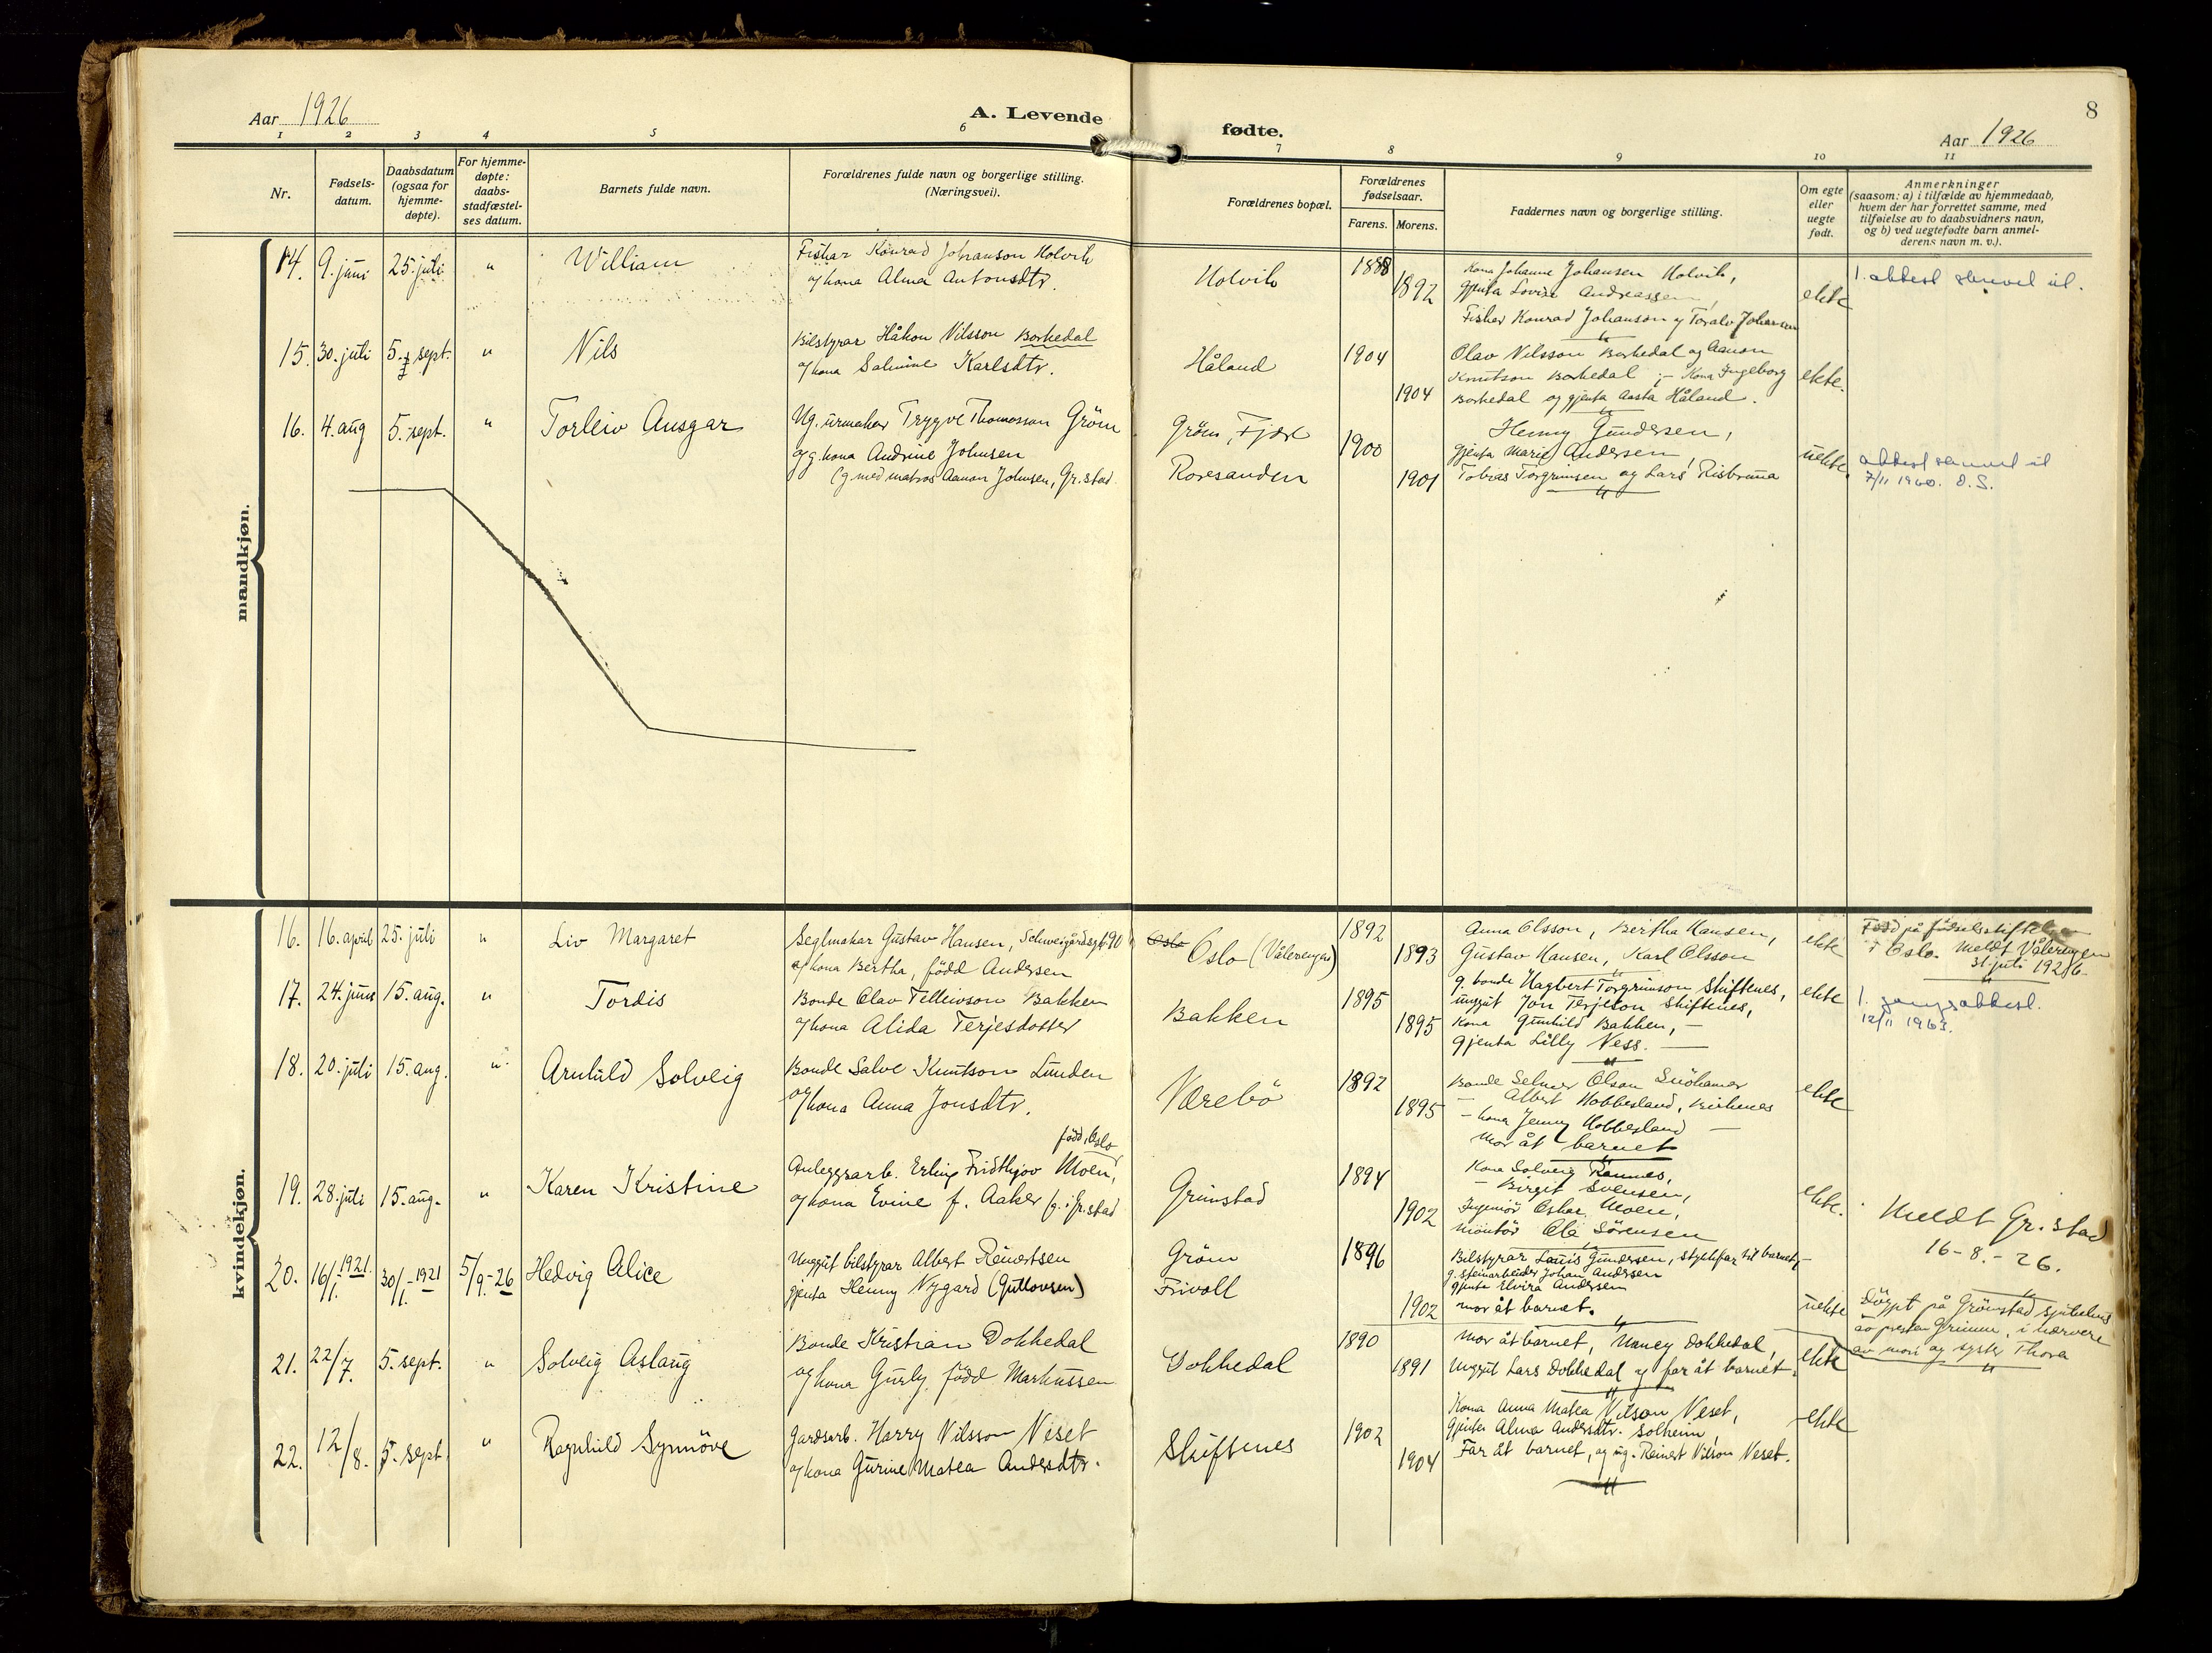 8
Aar 1926
A. Levende
fødte.
Aar 1926
1 2 3 4 5 6 7 8 9 10 11
Nr.
Fødsels-
datum.
Daabsdatum
(ogsaa for
hjemme-
døpte).
For hjemme-
døpte:
daabs-
stadfæstel-
ses datum.
Barnets fulde navn.
Forældrenes fulde navn og borgerlige stilling.
(Næringsvei).
Forældrenes bopæl.
Forældrenes
fødselsaar.
Farens. Morens.
Faddernes navn og borgerlige stilling.
Om egte
eller
uegte
født.
Anmerkninger
(saasom: a) i tilfælde av hjemmedaab,
hvem der har forrettet samme, med
tilføielse av to daabsvidners navn,
og b) ved uegtefødte barn anmel-
derens navn m. v.).
mandkjøn.
14. 9. juni 25. juli " William
Fisker Konrad Johanson Holvik
og kona Alma Antonsdtr.
Holvik
1888
1892
Kona Johanne Johansen Holvik,
gjenta Lovise Andreassen,
Fisker Konrad Johanson og Toralv Johansen
ekte
1. attest skrevet ut.
15. 30. juli 5. sept. " Nils
Bilstyrar Håkon Nilsson Borkedal
og kona Salmine Karlsdtr.
Håland
1904
1904
Olav Nilsson Borkedal og Aanon
Knutson Borkedal ;- Kona Ingeborg
Borkedal og gjenta Aasta Håland.
ekte.
16. 4. aug 5. sept. " Torleiv Ansgar
Ug. urmaker Trygve Thomasson Gröm
og g. kona Andrine Johnsen
(g med matros Aanon Johnsen, Gr.stad
Gröm, Fjære
Roresanden
1900
1901
Henny Gundersen,
gjenta Marie Andersen,
Tobias Torgrimsen og Lars Risbruna
uekte.
attest skrevet ut
7/11 1960. O.S.
kvindekjøn.
16. 16. april 25. juli " Liv Margaret
Seglmakar Gustav Hansen, Schweigårdsgt 90
og kona Bertha, född Andersen
Oslo Oslo (Vålerengen)
1892
1893
Anna Olsson, Bertha Hansen,
Gustav Hansen, Karl Olsson
ekte
Född på födselsstiftelsen
i Oslo. Meldt Vålerengen
31 juli 1926.
17. 24. juni 15. aug. " Tordis
Bonde Olav Tellevson Bakken
og kona Alida Terjesdotter
Bakken
1895
1895
g. bonde Hagbert Torgrimson Skiftenes,
ungut Jon Terjeson Skiftenes,
Kona Gunhild Bakken, -
gjenta Lilly Ness. -
ekte
1. gangsattest.
12/11 1963.
18. 20. juli 15. aug. " Arnhild Solveig
Bonde Salve Knutson Lunden
og kona Anna Jonsdtr.
Værebö
1892
1895
Bonde Selmer Olson Suohamar
- Albert Hobbesland, Birkenes
- kona Jenny Hobbesland -
Mor åt barnet
ekte
19. 28. juli 15. aug. " Karen Kristine
född i Oslo
Anleggsarb. Erling Fridthjov Moen,
og kona Evine f. Aaker (g. i Gr.stad
Grimstad
1894
1902
Kona Solveig Rannes,
- Birgit Svensen,
Ingeniör Oskar Moen,
Montör Ole Sörensen
ekte.
Meldt Gr.stad
16-8.-26.
20. 16/1. 1921. 30/1.-1921 5/9.-26 Hedvig Alice
Ungut bilstyrar Albert Reinertsen
gjenta Henny Nygard (Guttormsen)
Gröm
Frivoll
1896
1902
Bilstyrar Lauis Gundersen, stykfar til barnet,-
g. steinarbeider Johan Andersen
gjenta Elvira Andersen
mor åt barnet.
uekte
Döypt på Grimstad sjukehus
av presten Grimm, i nærvere
av mori og syster Thora
21. 22/7. 5. sept. " Solveig Aslaug
Bonde Kristian Dokkedal
og kona Gurly, född Markussen
Dokkedal
1890
1891
Mor åt barnet, Nancy Dokkedal,
Ungut Lars Dokkedal og far åt barnet.
ekte
22. 12/8. 5. sept. " Ragnhild Synnöve
Gardsarb. Harry Nilsson Veset
og kona Gurine Matea Andersdtr.
Skiftenes
1902
1904
Kona Anna Matea Nilson Veset,
Gjenta Alma Andersdtr. Solheim,
Far åt barnet, og ug. Reinert Nilson Veset.
ekte